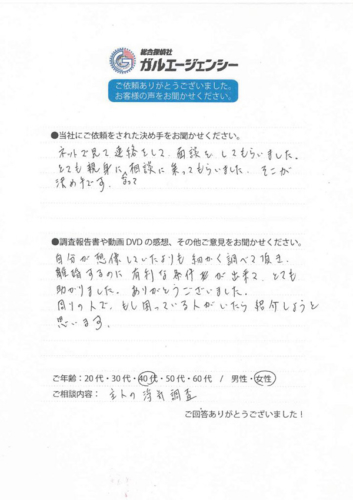 総合探偵社
ガルエージェンシー
ご依頼ありがとうございました。
お客様の声をお聞かせください。
●当社にご依頼をされた決め手をお聞かせください。
ネットで見て連絡をして、面談をしてもらいました。
とても親身になって相談に乗ってもらいました。そこが
決め手です。
●調査報告書や動画DVDの感想、その他ご意見をお聞かせください。
自分が想像していたよりも細かく調べて頂き、
離婚するのに有利な条件が出来て、とても
助かりました。ありがとうございました。
周りの人で、もし困っている人がいたら紹介しようと
思います。
ご年齢:20代・30代・40代・50代・60代 / 男性・女性
ご相談内容: 主人の浮気調査
ご回答ありがとうございました!